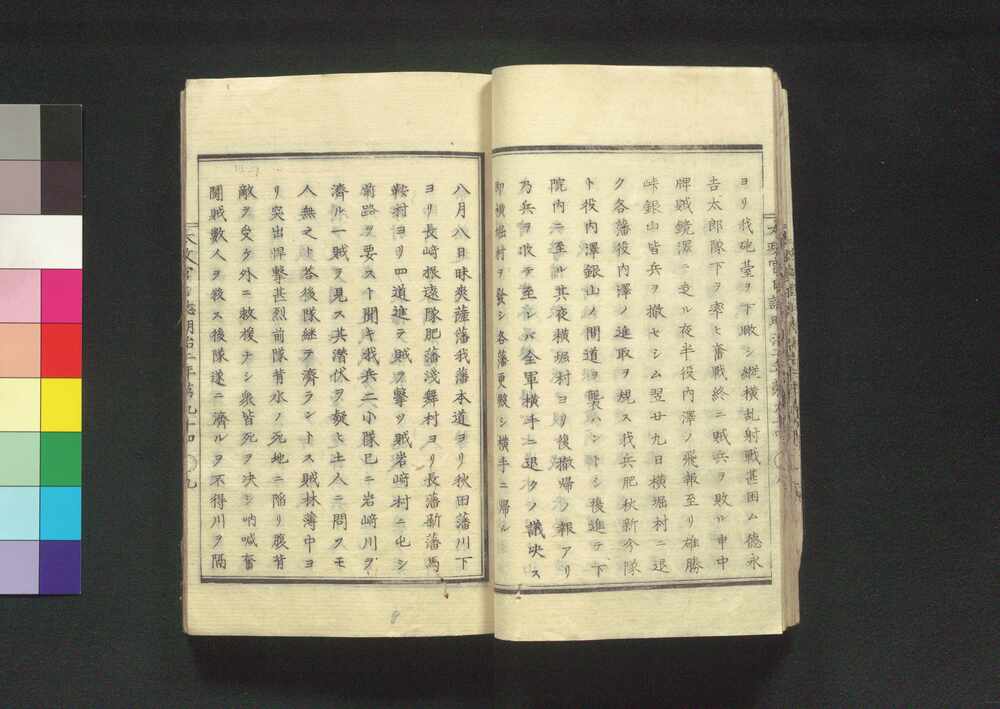 ヨリ我砲臺ヲ下瞰シ縦横乱射戦甚困ム德永
吉太郎隊下ヲ率ヒ奮戦終ニ賊兵ヲ敗ル申中
牌賊鏡澤ニ走ル夜半役内澤ノ飛報至リ雄勝
峠銀山皆兵ヲ撤セシム翌廿九日横堀村ニ退
ク各藩役内澤ノ進取ヲ規ス我兵肥秋新今隊
ト役内澤銀山ノ間道ヨリ襲ハントシ後進テ下
院内ニ至ル其夜横堀村ヨリ後撤帰ノ報アリ
乃兵ヲ收テ至レバ全軍横手ニ退クノ議决ス
即横堀村ヲ發シ各藩更殿シ横手ニ帰ル
八月八日昧爽薩藩我藩本道ヨリ秋田藩川下
ヨリ長﨑振遠隊肥藩淺舞村ヨリ長藩新藩馬
鞍村ヨリ四道進テ賊ヲ擊ツ賊岩﨑村ニ屯シ
前路ヲ要スト聞キ我兵二小隊已ニ岩﨑川ヲ
濟ル一賊ヲ見ス其潜伏ヲ疑ヒ土人ニ問クモ
人無之ト答後隊継ヲ濟ラントス賊林薄中ヨ
リ突出悍擊甚烈前隊背水ノ死地ニ陥リ腹背
敵ヲ受ケ外ニ救援ナシ衆皆死ヲ决シ吶喊奮
鬪賊數人ヲ殺ス後隊遂ニ濟ルヲ不得川ヲ隔
太政官日誌明治二年第九十四
九